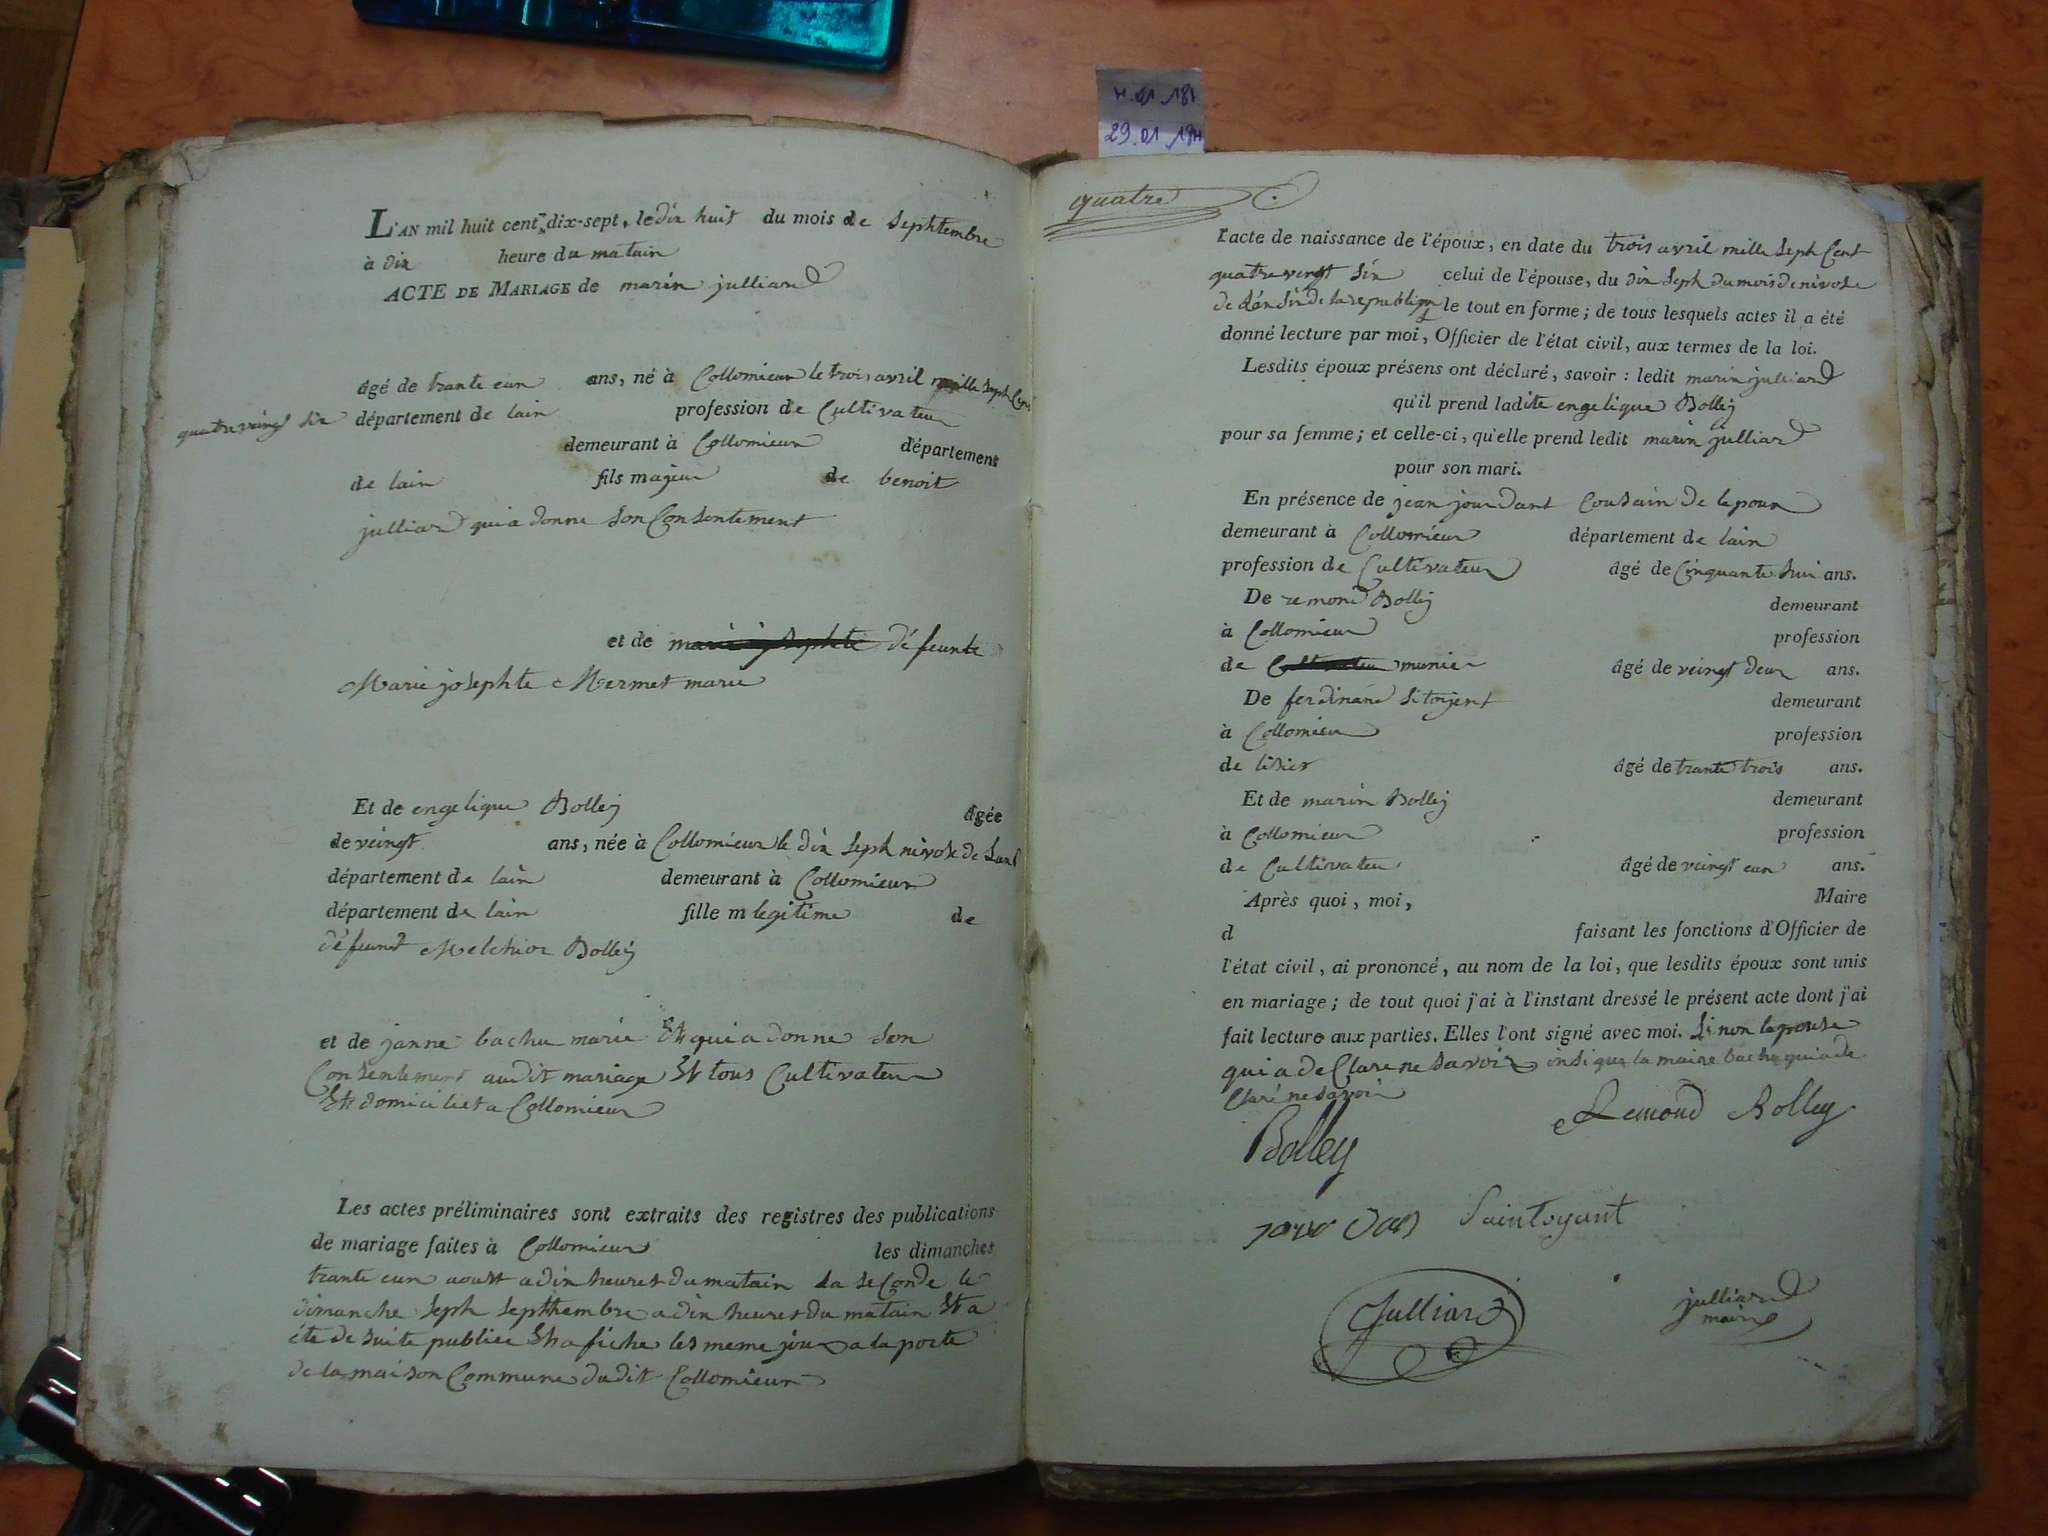 29.01.18
L'AN mil huit cent dix-sept, le dix huit du mois de sephtembre
à dix heure du matain
ACTE DE MARIAGE de marin julliard
âgé de trante eun ans, né à Collomieux le trois avril mille seph Cent
quatre veingt six
département de lain profession de Cultivateur
demeurant à Collomieux département
de lain fils majeur de benoit
julliard qui a donne son Consentement
et de marie josephte défeunte
Marie josephte Mermet marie
Et de engelique Bolley âgée
de veingt ans, née à Collomieux le dix seph nivose de lan 6
département de lain demeurant à Collomieux
département de lain fille m legitime de
défeunt Melchior Bolley
et de janne bachu marie Et qui a donne son
Consentement audit mariage Et tous Cultivateur
Et domiciliest a Collomieux
Les actes préliminaires sont extraits des registres des publications
de mariage faites à Collomieux les dimanches
trante eun aoust a dix heures du matain La seConde le
dimanche seph septhembre a dix heures du matain Et a
éte de suite publiee Et afiche les meme joux a la porte
de la maison Commune dudit Collomieux
quatre
l'acte de naissance de l'époux, en date du trois avril mille seph Cent
quatre veingt six celui de l'épouse, du dix seph du mois de nivose
de lén six de la republique le tout en forme; de tous lesquels actes il a été
donné lecture par moi, Officier de l'état civil, aux termes de la loi.
Lesdits époux présens ont déclaré, savoir : ledit marin julliard
qu'il prend ladite engelique Bolley
pour sa femme; et celle-ci, qu'elle prend ledit marin julliard
pour son mari.
En présence de jean jourdant Cousain de lepoux
demeurant à Collomieux département de lain
profession de Cultivateur âgé de Cinquante huit ans.
De remond Bolley demeurant
à Collomieux profession
de Cultivateur munier âgé de veingt deux ans.
De ferdinand sitoijent demeurant
à Collomieux profession
de tisier âgé de trante trois ans.
Et de marin Bolley demeurant
à Collomieux profession
de Cultivateur âgé de veingt eun ans.
Après quoi, moi, Maire
d faisant les fonctions d'Officier de
l'état civil, ai prononcé, au nom de la loi, que lesdits époux sont unis
en mariage; de tout quoi j'ai à l'instant dressé le présent acte dont j'ai
fait lecture aux parties. Elles l'ont signé avec moi. Si non lepouse
qui a de Clare ne savoir insi que la maire bachu qui a de
Claré ne savoir
Remond Bolley
Bolley
Saintoyant
Julliard
julliard
maire